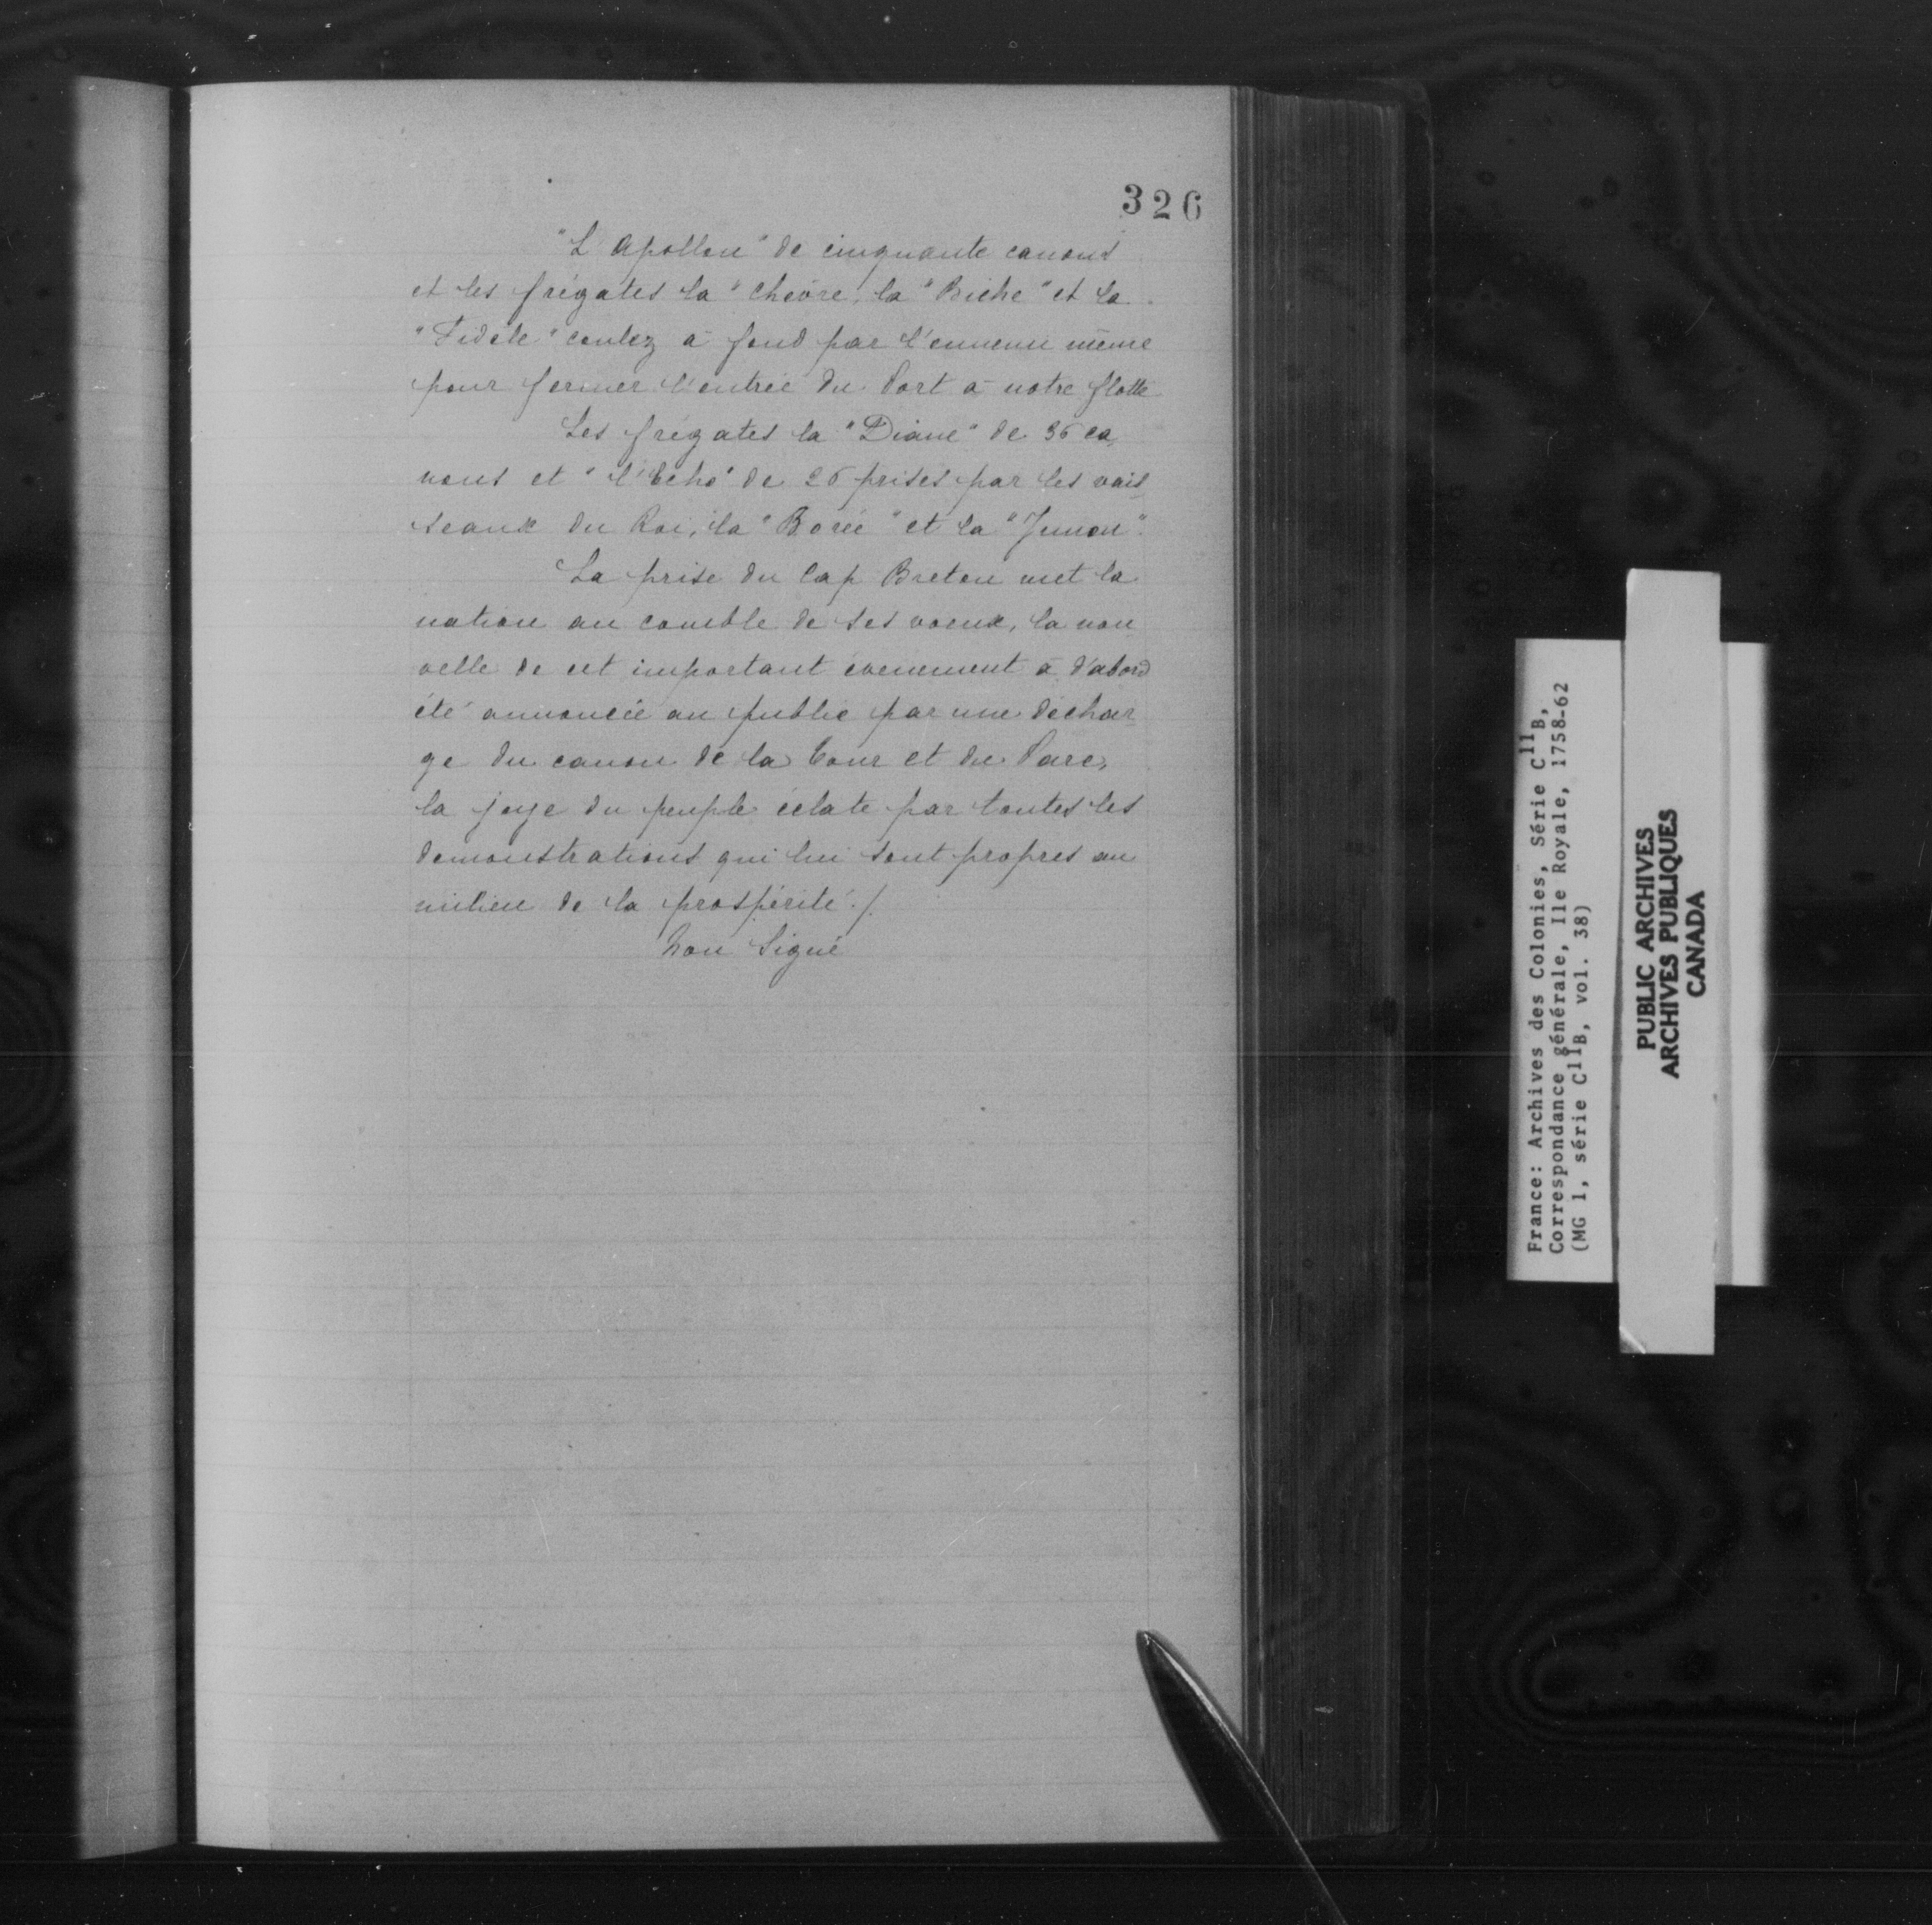 326
"L'Apollon" de cinquante canons
et les frégates la "Chèvre, la "Biche" et la
"Fidèle" coulez à fond par l'ennemi même
pour fermer l'entrée du Port à notre flotte
Les frégates la "Diane" de 36 ca
nons et "l'Echo" de 26 prises par les vais
seaux du Roi, la "Borée" et la "Junon".
La prise du Cap Breton met la
nation au comble de ses voeux, la nou
velle de cet important évenement à d'abord
été annoncée au public par une déchar
ge du canon de la Tour et du Parc,
la joye du peuple éclate par toutes les
demonstrations qui lui sont propres au
milieu de la prospérité./.
Non Signé
France: Archives des Colonies, Série C11B,
Correspondance générale, Ile Royale, 1758-62
(MG 1, série C11B, vol. 38)
PUBLIC ARCHIVES
ARCHIVES PUBLIQUES
CANADA